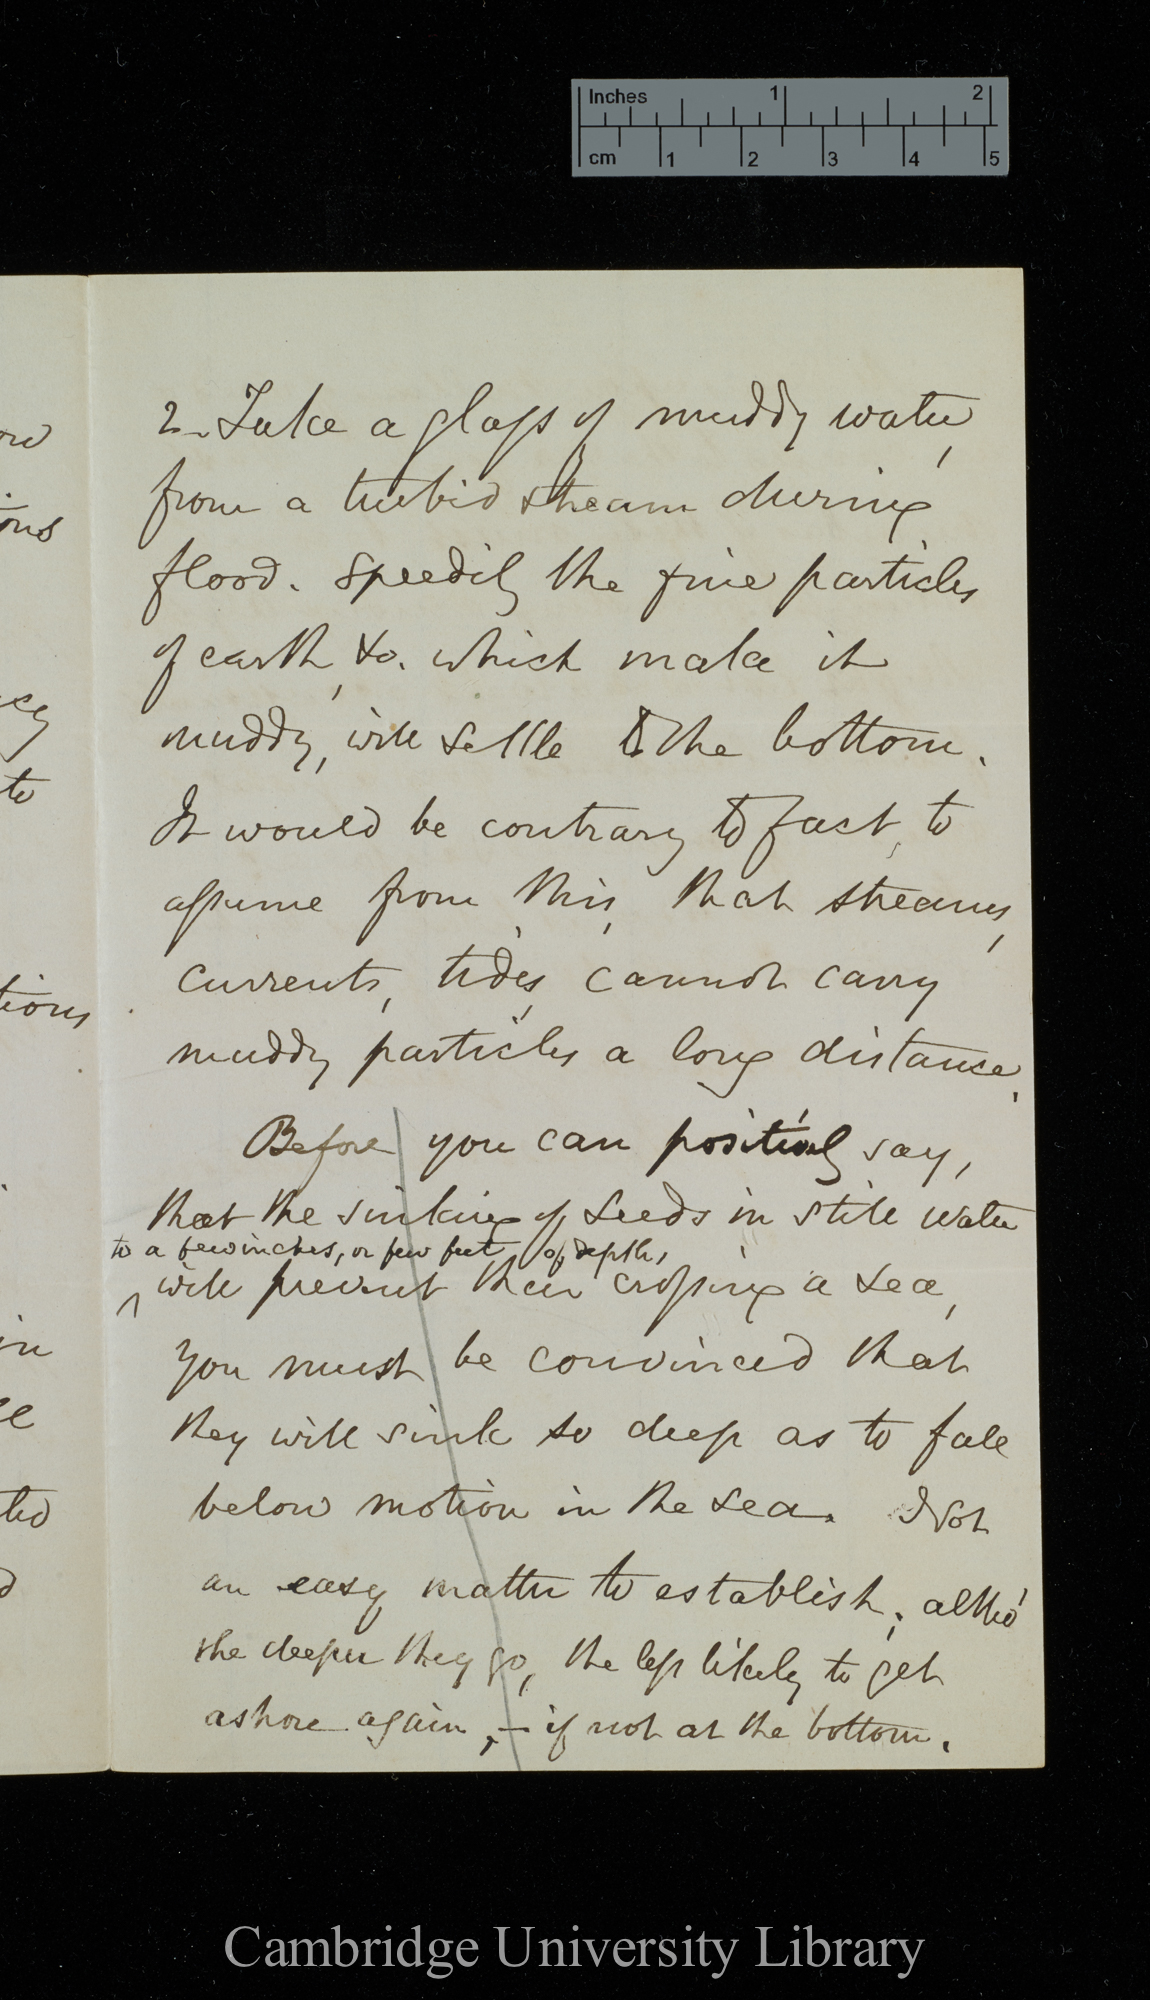 Inches 1 2
cm 1 2 3 4 5
ow
ions
to
tions
in
ted
d
2. Take a glass of muddy water,
from a turbid stream during
flood. Speedily the fine particles
of earth, &c. which make it
muddy, will settle to the bottom.
It would be contrary to fact, to
assume from this, that streams,
currents, tides, cannot carry
muddy particles a long distance.
Before you can positively say,
that the sinking of seeds in still water
to a few inches, or few feet, of depth,
will prevent their crossing a sea,
you must be convinced that
they will sink so deep as to fall
below motion in the sea. Not
an easy matter to establish; altho'
the deeper they go, the less likely to get
ashore again, – if not at the bottom.
Cambridge University Library